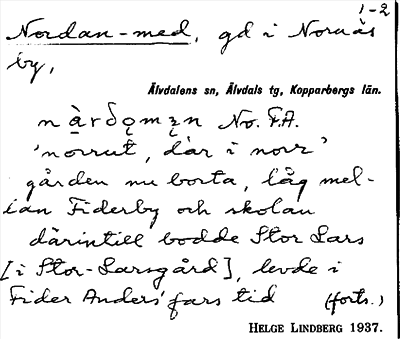 1-2
Nordan-med, gd i Nornäs
by,
Älvdalens sn, Älvdals tg, Kopparbergs län.
No. F.A.
'norrut, där i norr'
gården nu borta, låg mel-
lan Fiderby och skolan
därintill bodde Stor Lars
[i Stor-Larsgård], levde i
Fider Anders' fars tid (forts.)
HELGE LINDBERG 1937.